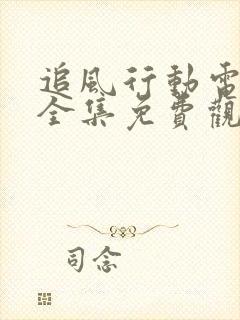 追風行動電
全集免費觀
司念